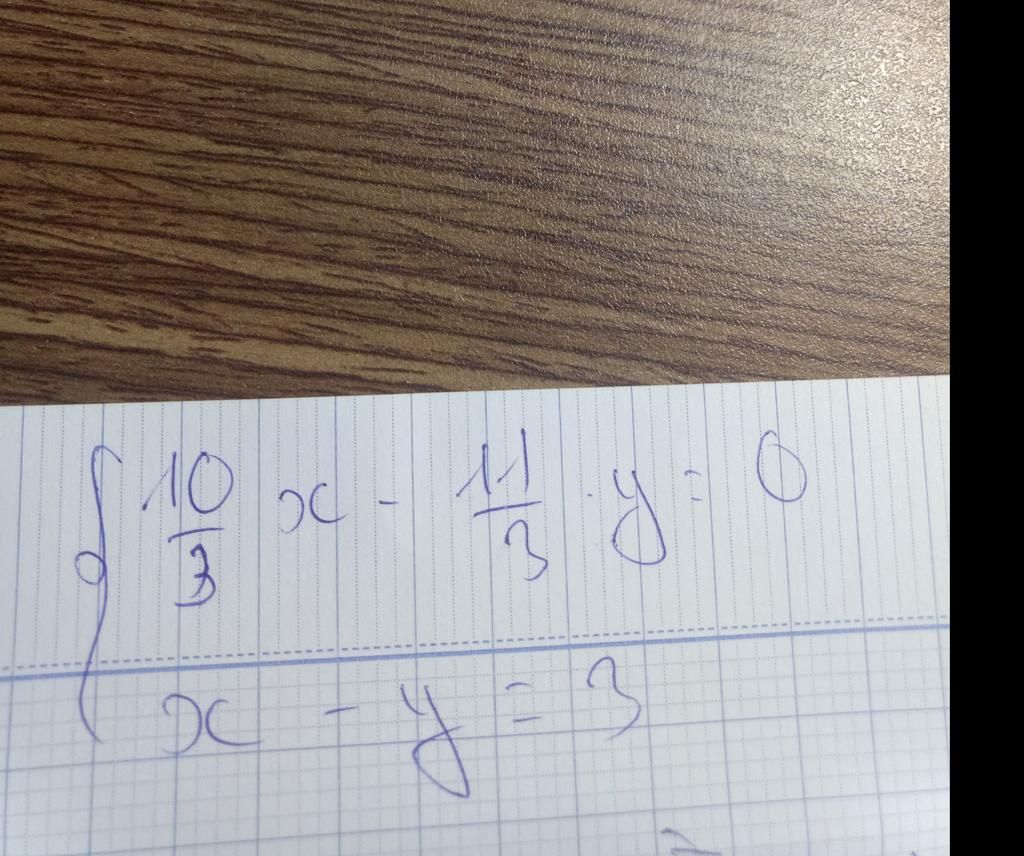 { 10/3 x - 11/3 . y = 0
x - y = 3